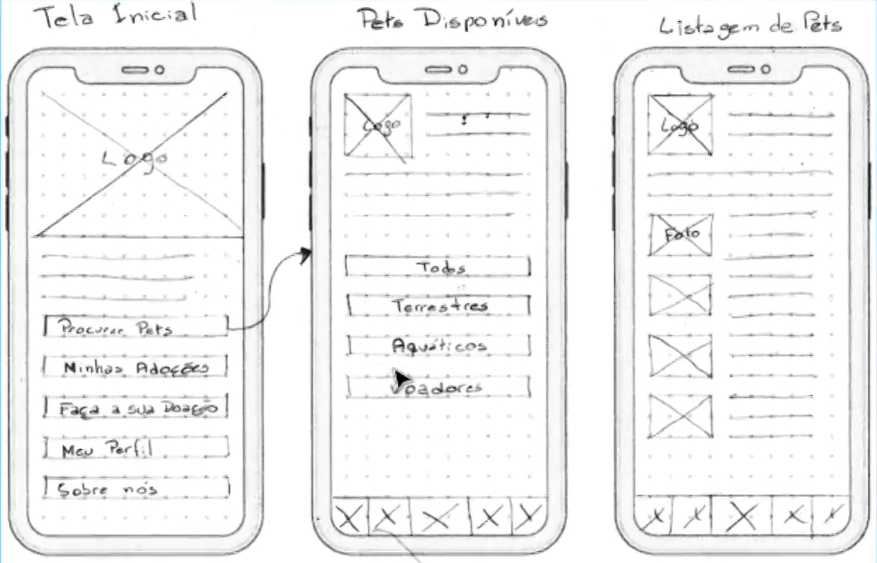 Tela Inicial
Logo
Procurar Pets
Minhas Adoções
Faça a sua Doação
Meu Perfil
Sobre nós
Pets Disponíves
Logo
Todos
Terrestres
Aquáticos
Voadores
Listagem de Pets
Logo
Foto